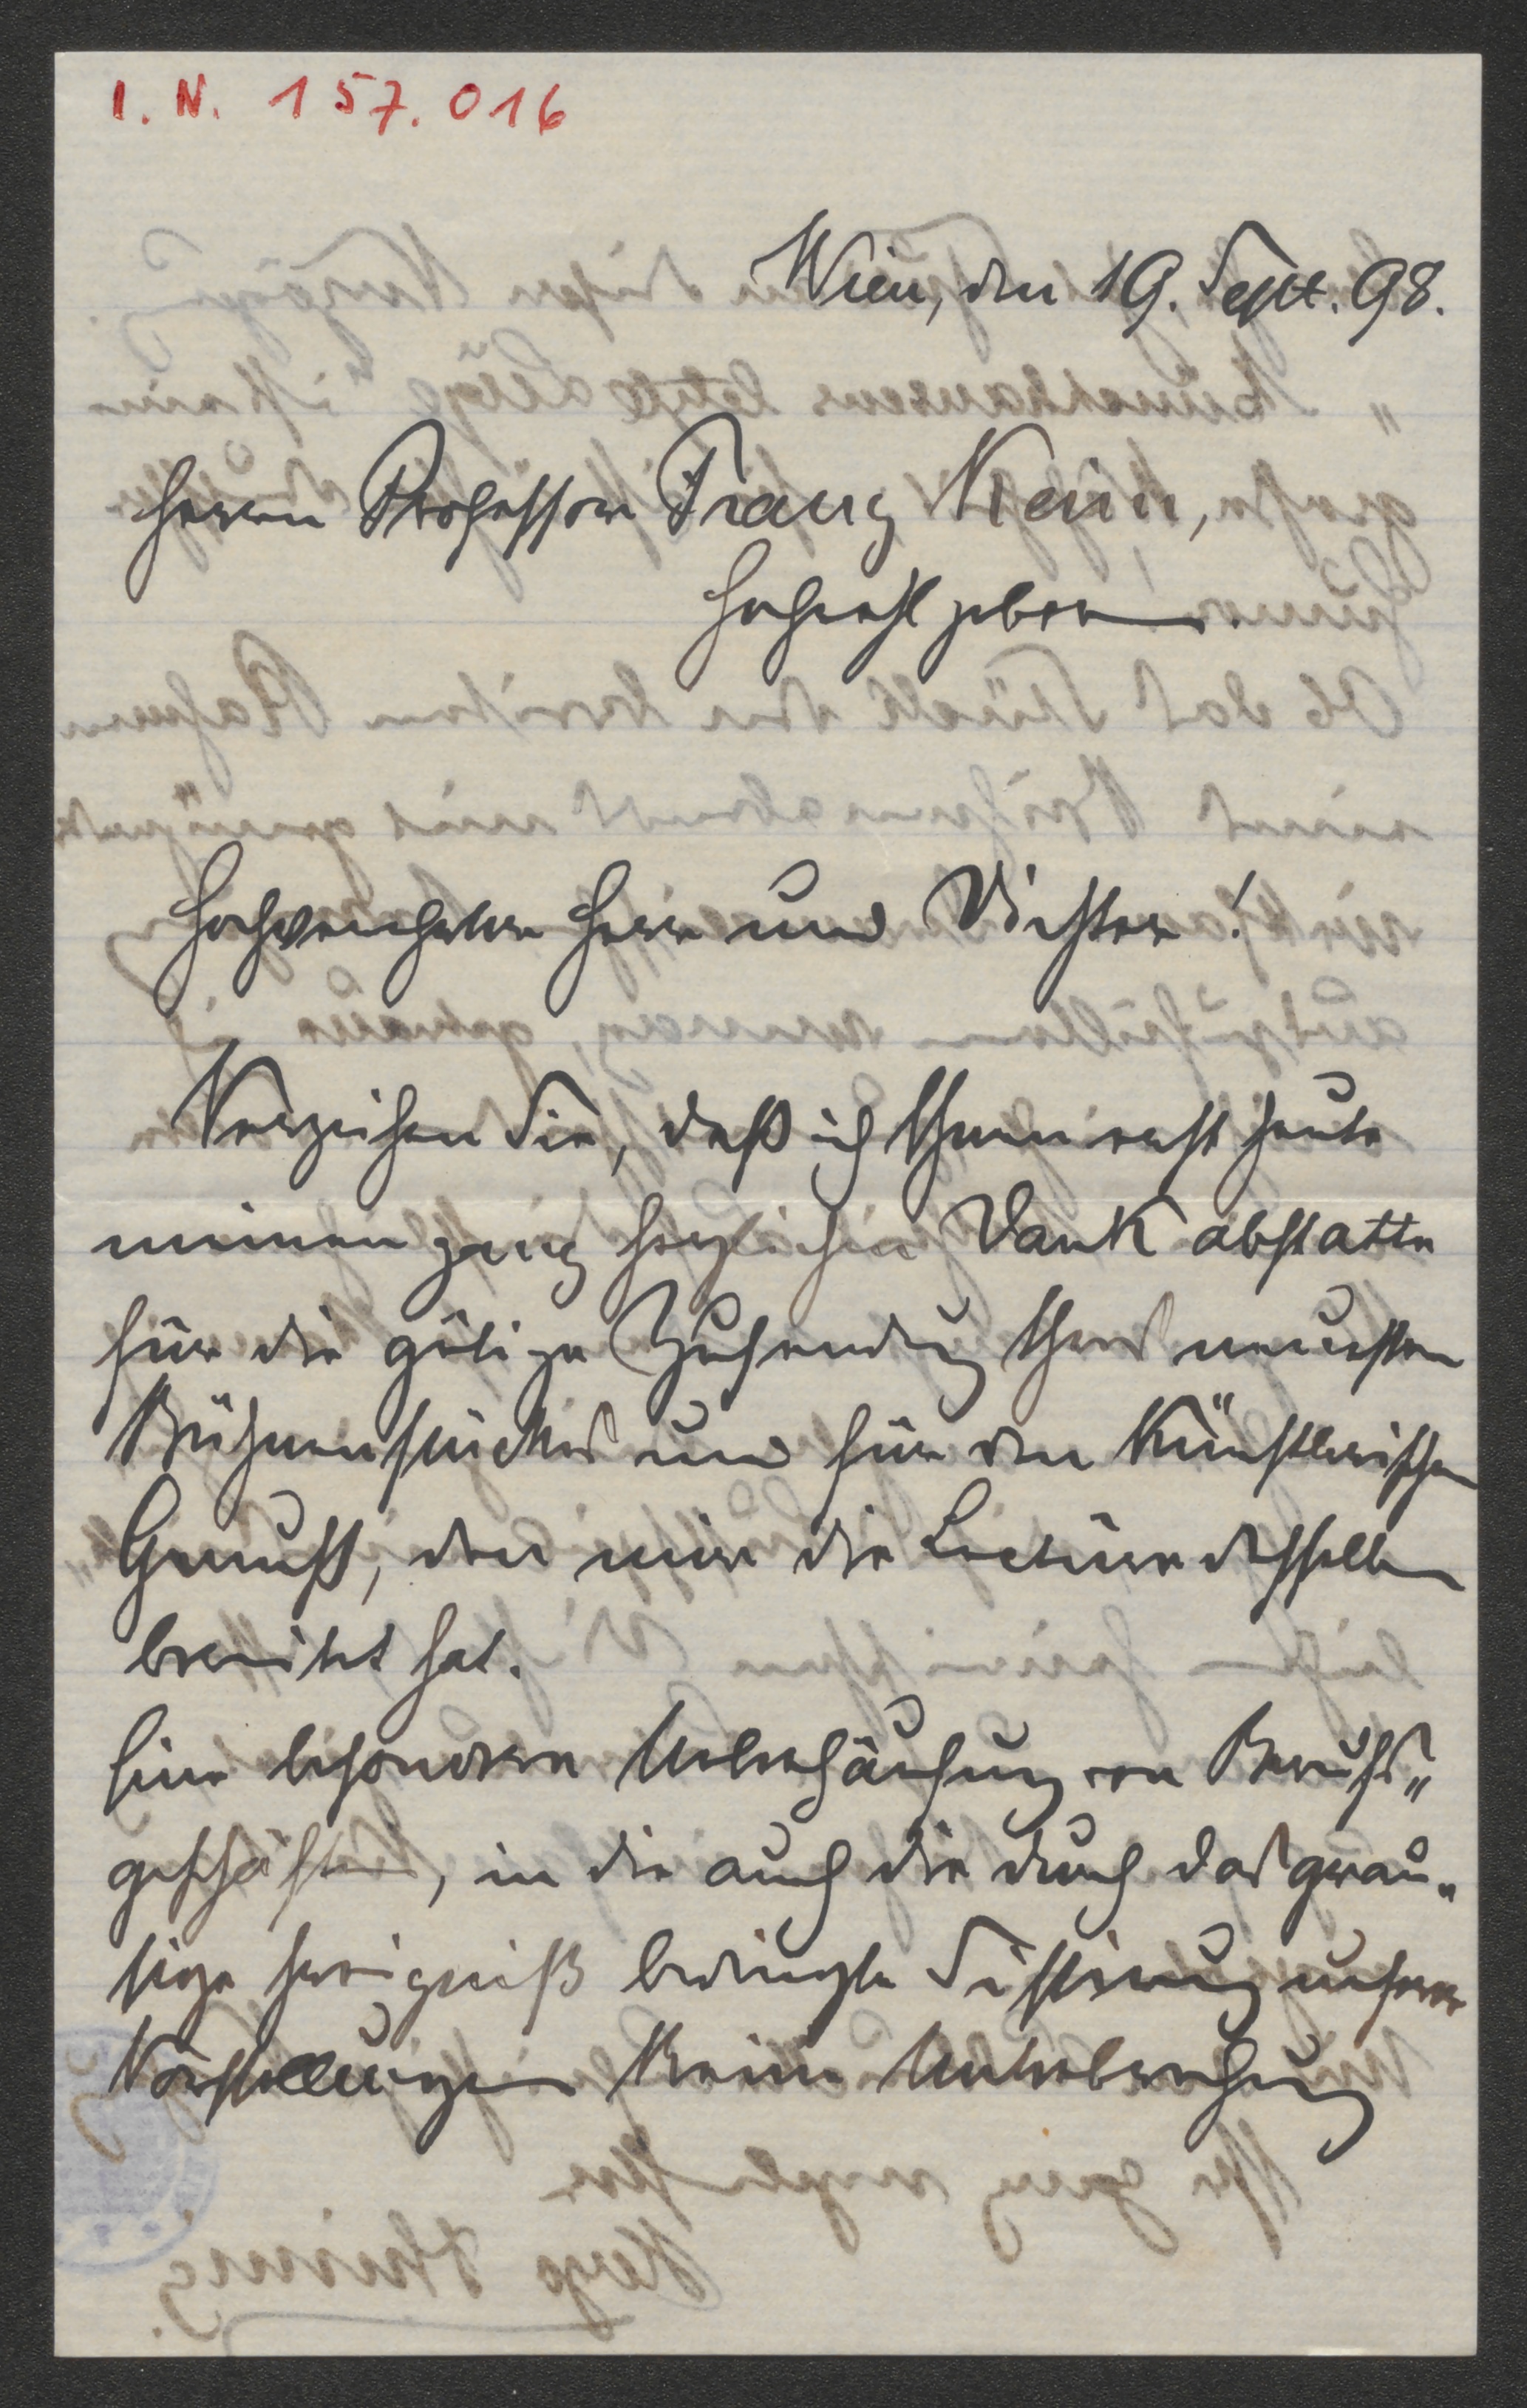 I. N. 157.016
Wien, den 19. Sept. 98.
Herrn Professor Franz Keim,
Hochwohlgeboren.
Hochverehrter Herr und Dichter!
Verzeihen Sie, daß ich Ihnen erst heute
meinen ganz herzlichen Dank abstatte
für die gütige Zusendung Ihres neuesten
Bühnenstückes und für den künstlerischen
Genuß, den mir die Lectüre desselben
bereitet hat.
Eine besondere Ueberhäufung von Berufs„
geschäften, in die auch die durch das grau„
sige Ereigniß bedingte Sistirung unserer
Vorstellungen keine Unterbrechung